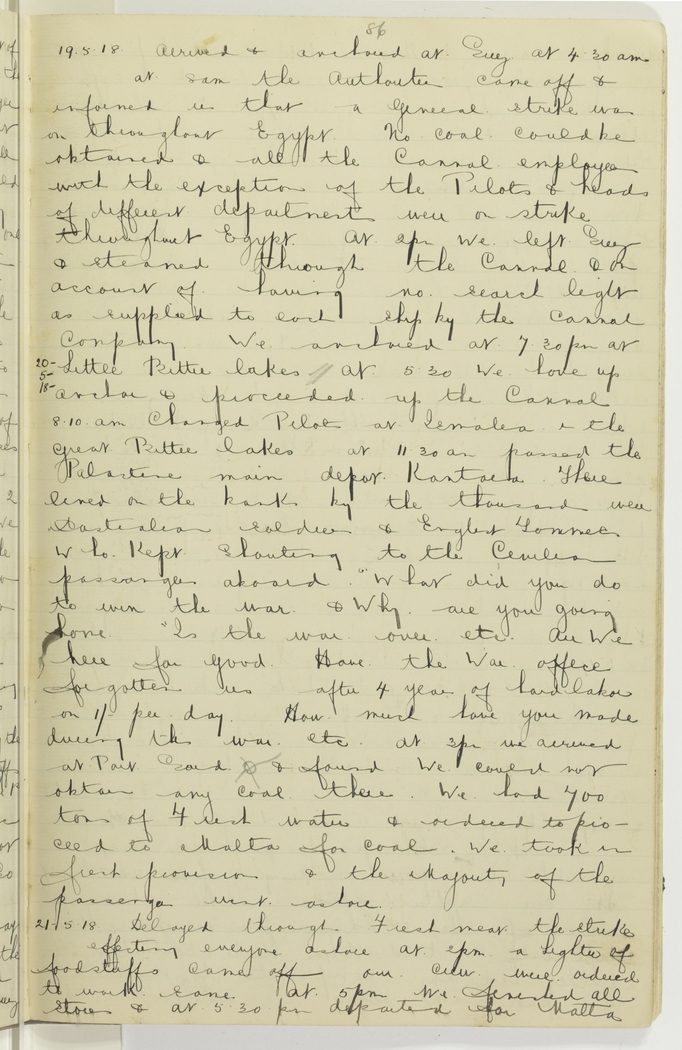 86
19.5.18 Arrived & anchored at Suez at 4.30 am
at 8am the Authoutes came off &
informed us that a General strike was
on throughout Egypt. No coal could be
obtained & all the Cannal employees
with the exception of the Pilots & heads
of different department were on strike
throughout Egypt. At 2pm We left Suez
& steamed through the Cannal & on
account of having no search light
as supplied to each ship by the Cannal
Company We anchored at 7.30pm at
20-5-18- Little Bitter lakes // At 5.30 We hove up
anchor & proceeded up the Cannal
8.10 am Changed Pilot at Ismalea in the
great Bitter lakes at 11.30 am passed the
Palastine main depot. Kantara. There
lined on the banks by the thousand were
Australian soldiers & English Tommies
Who Kept Shouting to the Civilian
passanges aboard. "What did you do
to win the war. & Why. are you going
home. "Is the war over. etc. Are We
here for good. Have the War office
forgotten us after 4 years of hard labor
on 1/- per day. How much have you made
during the war. etc. at 3pm we arrived
at Port Said & & found We could not
obtain any coal there. We had 700
tons of Fresh water & ordered to pro-
ceed to Malta for coal. We took in
fresh provision & the Majority of the
passenges went ashore.
21-5-18. Delayed through Fresh meat the strike
effecting everyone ashore at 2pm a lighter of
foodstuffs came off our crew were ordered
to work same. At 5pm We finished all
stores & at 5.30 pm departed for Malta